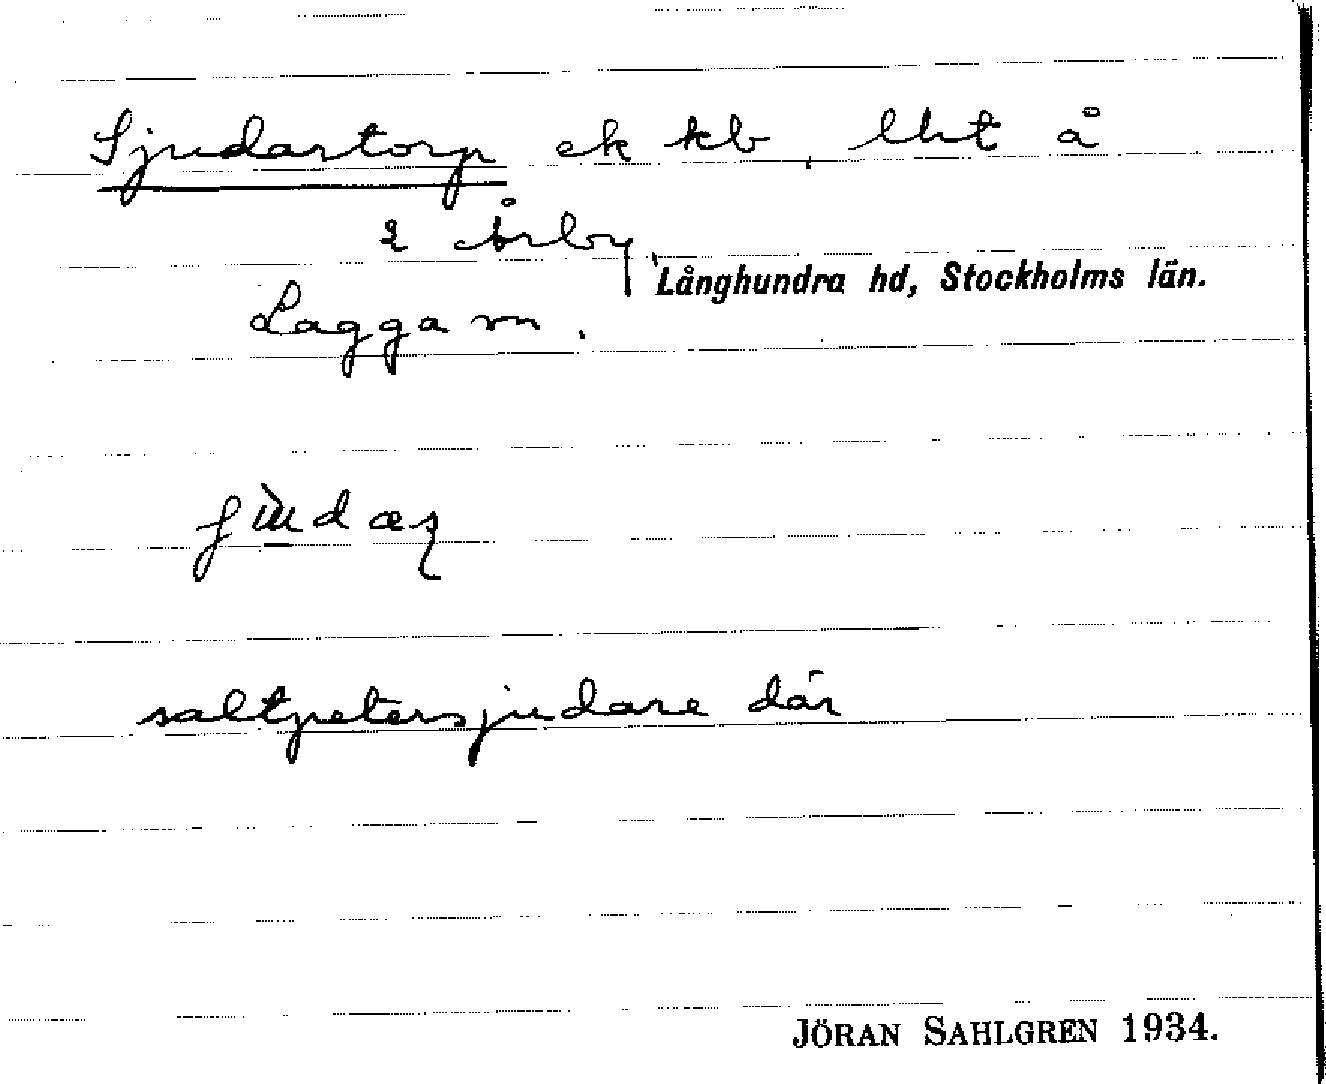 Sjudartorp ek kb, lht å
2 Årby
Långhundra hd, Stockholms län.
Lagga sn.
saltpetersjudare där
JÖRAN SAHLGREN 1934.